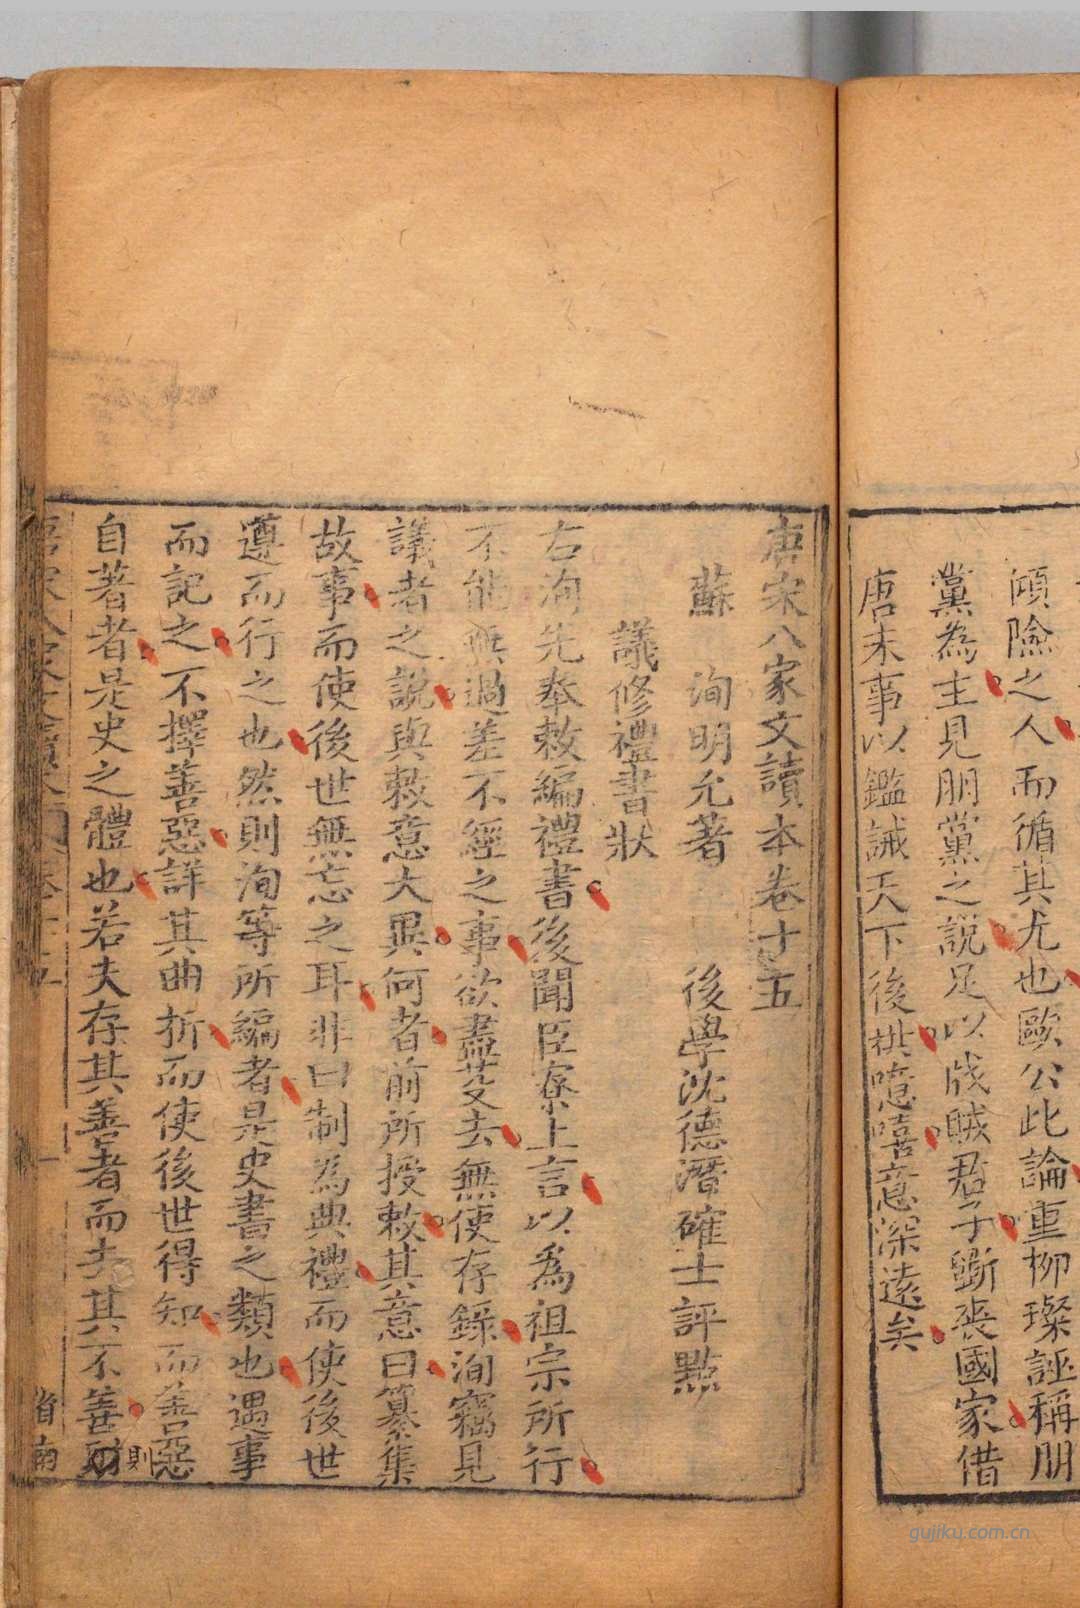 傾險之人而循其尤也歐公此論重柳璨誣稱朋
黨為主見朋黨之說足以戕賊君子斲喪國家借
唐末事以鑑誡天下後世噫嘻意深遠矣
唐宋八家文讀本卷十五
蘇 洵明允著 後學沈德潛確士評點
議修禮書狀
右洵先奉敕編禮書後聞臣寮上言以為祖宗所行
不能無過差不經之事欲盡芟去無使存錄洵竊見
議者之說與敕意大異何者前所授敕其意曰纂集
故事而使後世無忘之耳非曰制為典禮而使後世
遵而行之也然則洵等所編者是史書之類也遇事
而記之不擇善惡詳其曲折而使後世得知而善惡
自著者是史之體也若夫存其善者而去其不善則
則
唐宋八家文讀本 卷十五 一 省南
gujiku.com.cn